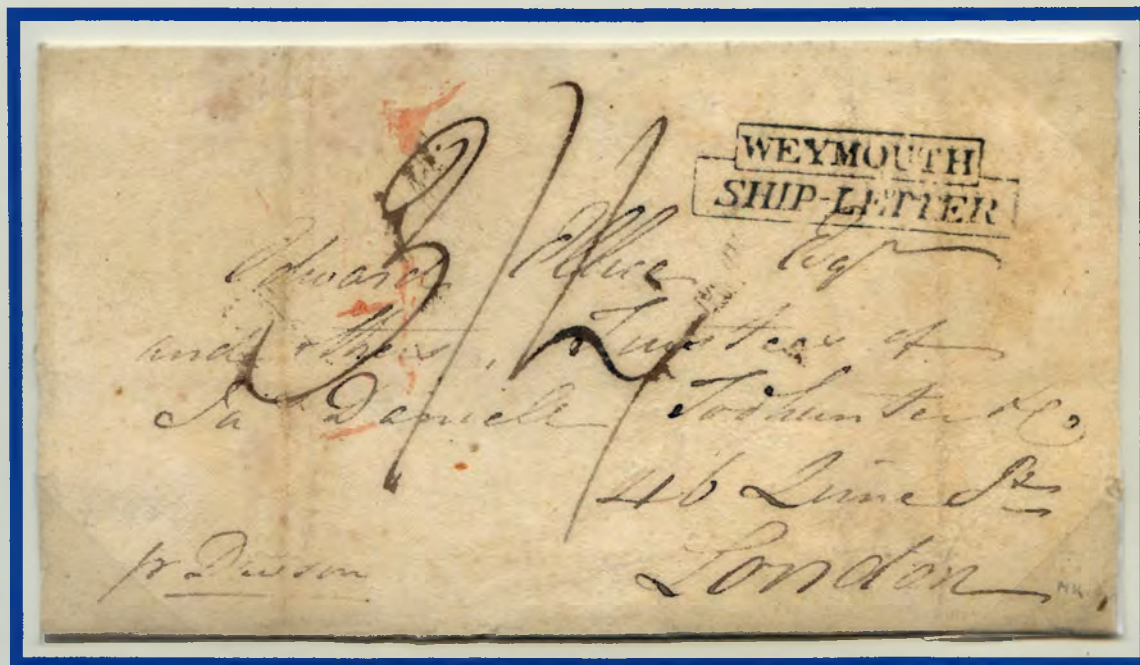 WEYMOUTH
SHIP-LETTER
3/2/
Edward Ellice Esqr
and others, Trustees of
Ja Daniell Todhunter & Co
46 Lime St
London
pr